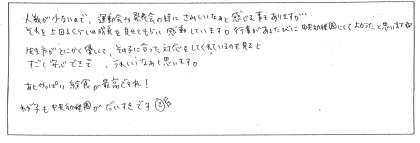 人数が少ないので、運動会や発表会の時に さみしいなぁと 感じる事もありますが…
それを上回るくらいの成長を見せてもらい 感動しています。行事があるたびに 中央幼稚園にして よかったと思います
先生方がとにかく優しくて、その子に合った対応をしてくれているのを見ると
すごく安心できて、うれしいなぁと思います。
あと やっぱり 給食が最高ですね!
わが子も中央幼稚園がだいすきです